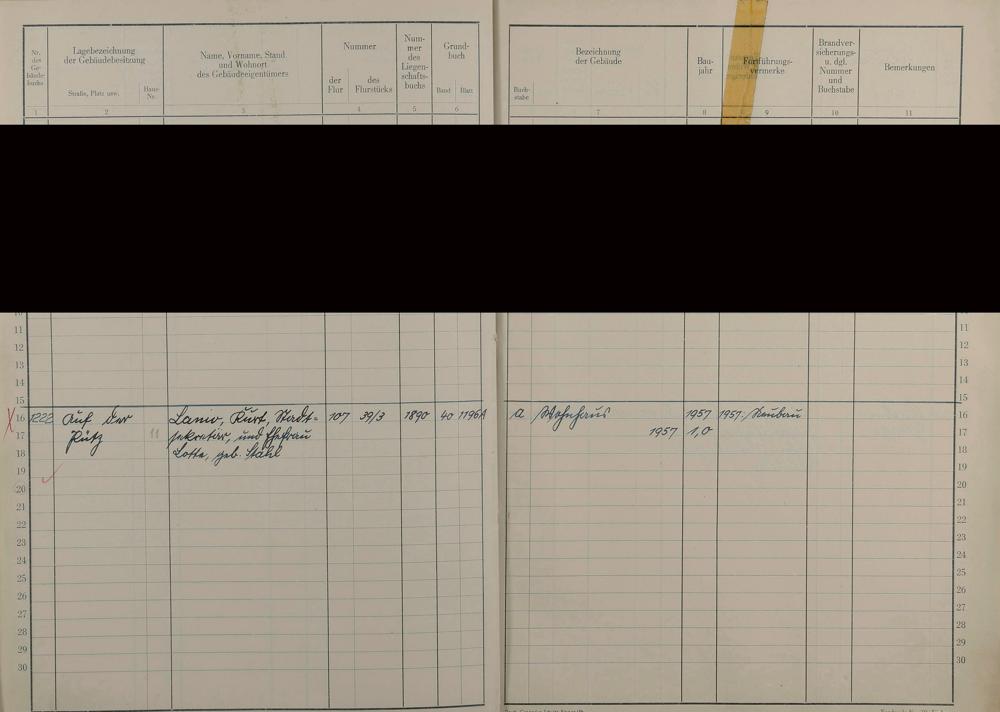 Nr. des Ge- bäude- buchs
Lagebezeichnung der Gebäudebesitzung
Straße, Platz usw.
Haus- Nr.
Name, Vorname, Stand und Wohnort des Gebäudeeigentümers
Nummer
der Flur
des Flurstücks
Num- mer des Liegen- schafts- buchs
Grund- buch
Band
Blatt
1 2 3 4 5 6
Buch- stabe
Bezeichnung der Gebäude
Bau- jahr
Fortführungs- vermerke
Brandver- sicherungs- u. dgl. Nummer und Buchstabe
Bemerkungen
7 8 9 10 11
10
11 11
12 12
13 13
14 14
15 15
16 1222 Auf der Lanio, Kurt, Stadt- 107 39/3 1890 40 1196A a Wohnhaus 1957 1957 Neubau 16
17 Pütz 11 sekretär, und Ehefrau 1957 1,0 17
18 Lotte, geb. Stahl 18
19 19
20 20
21 21
22 22
23 23
24 24
25 25
26 26
27 27
28 28
29 29
30 30